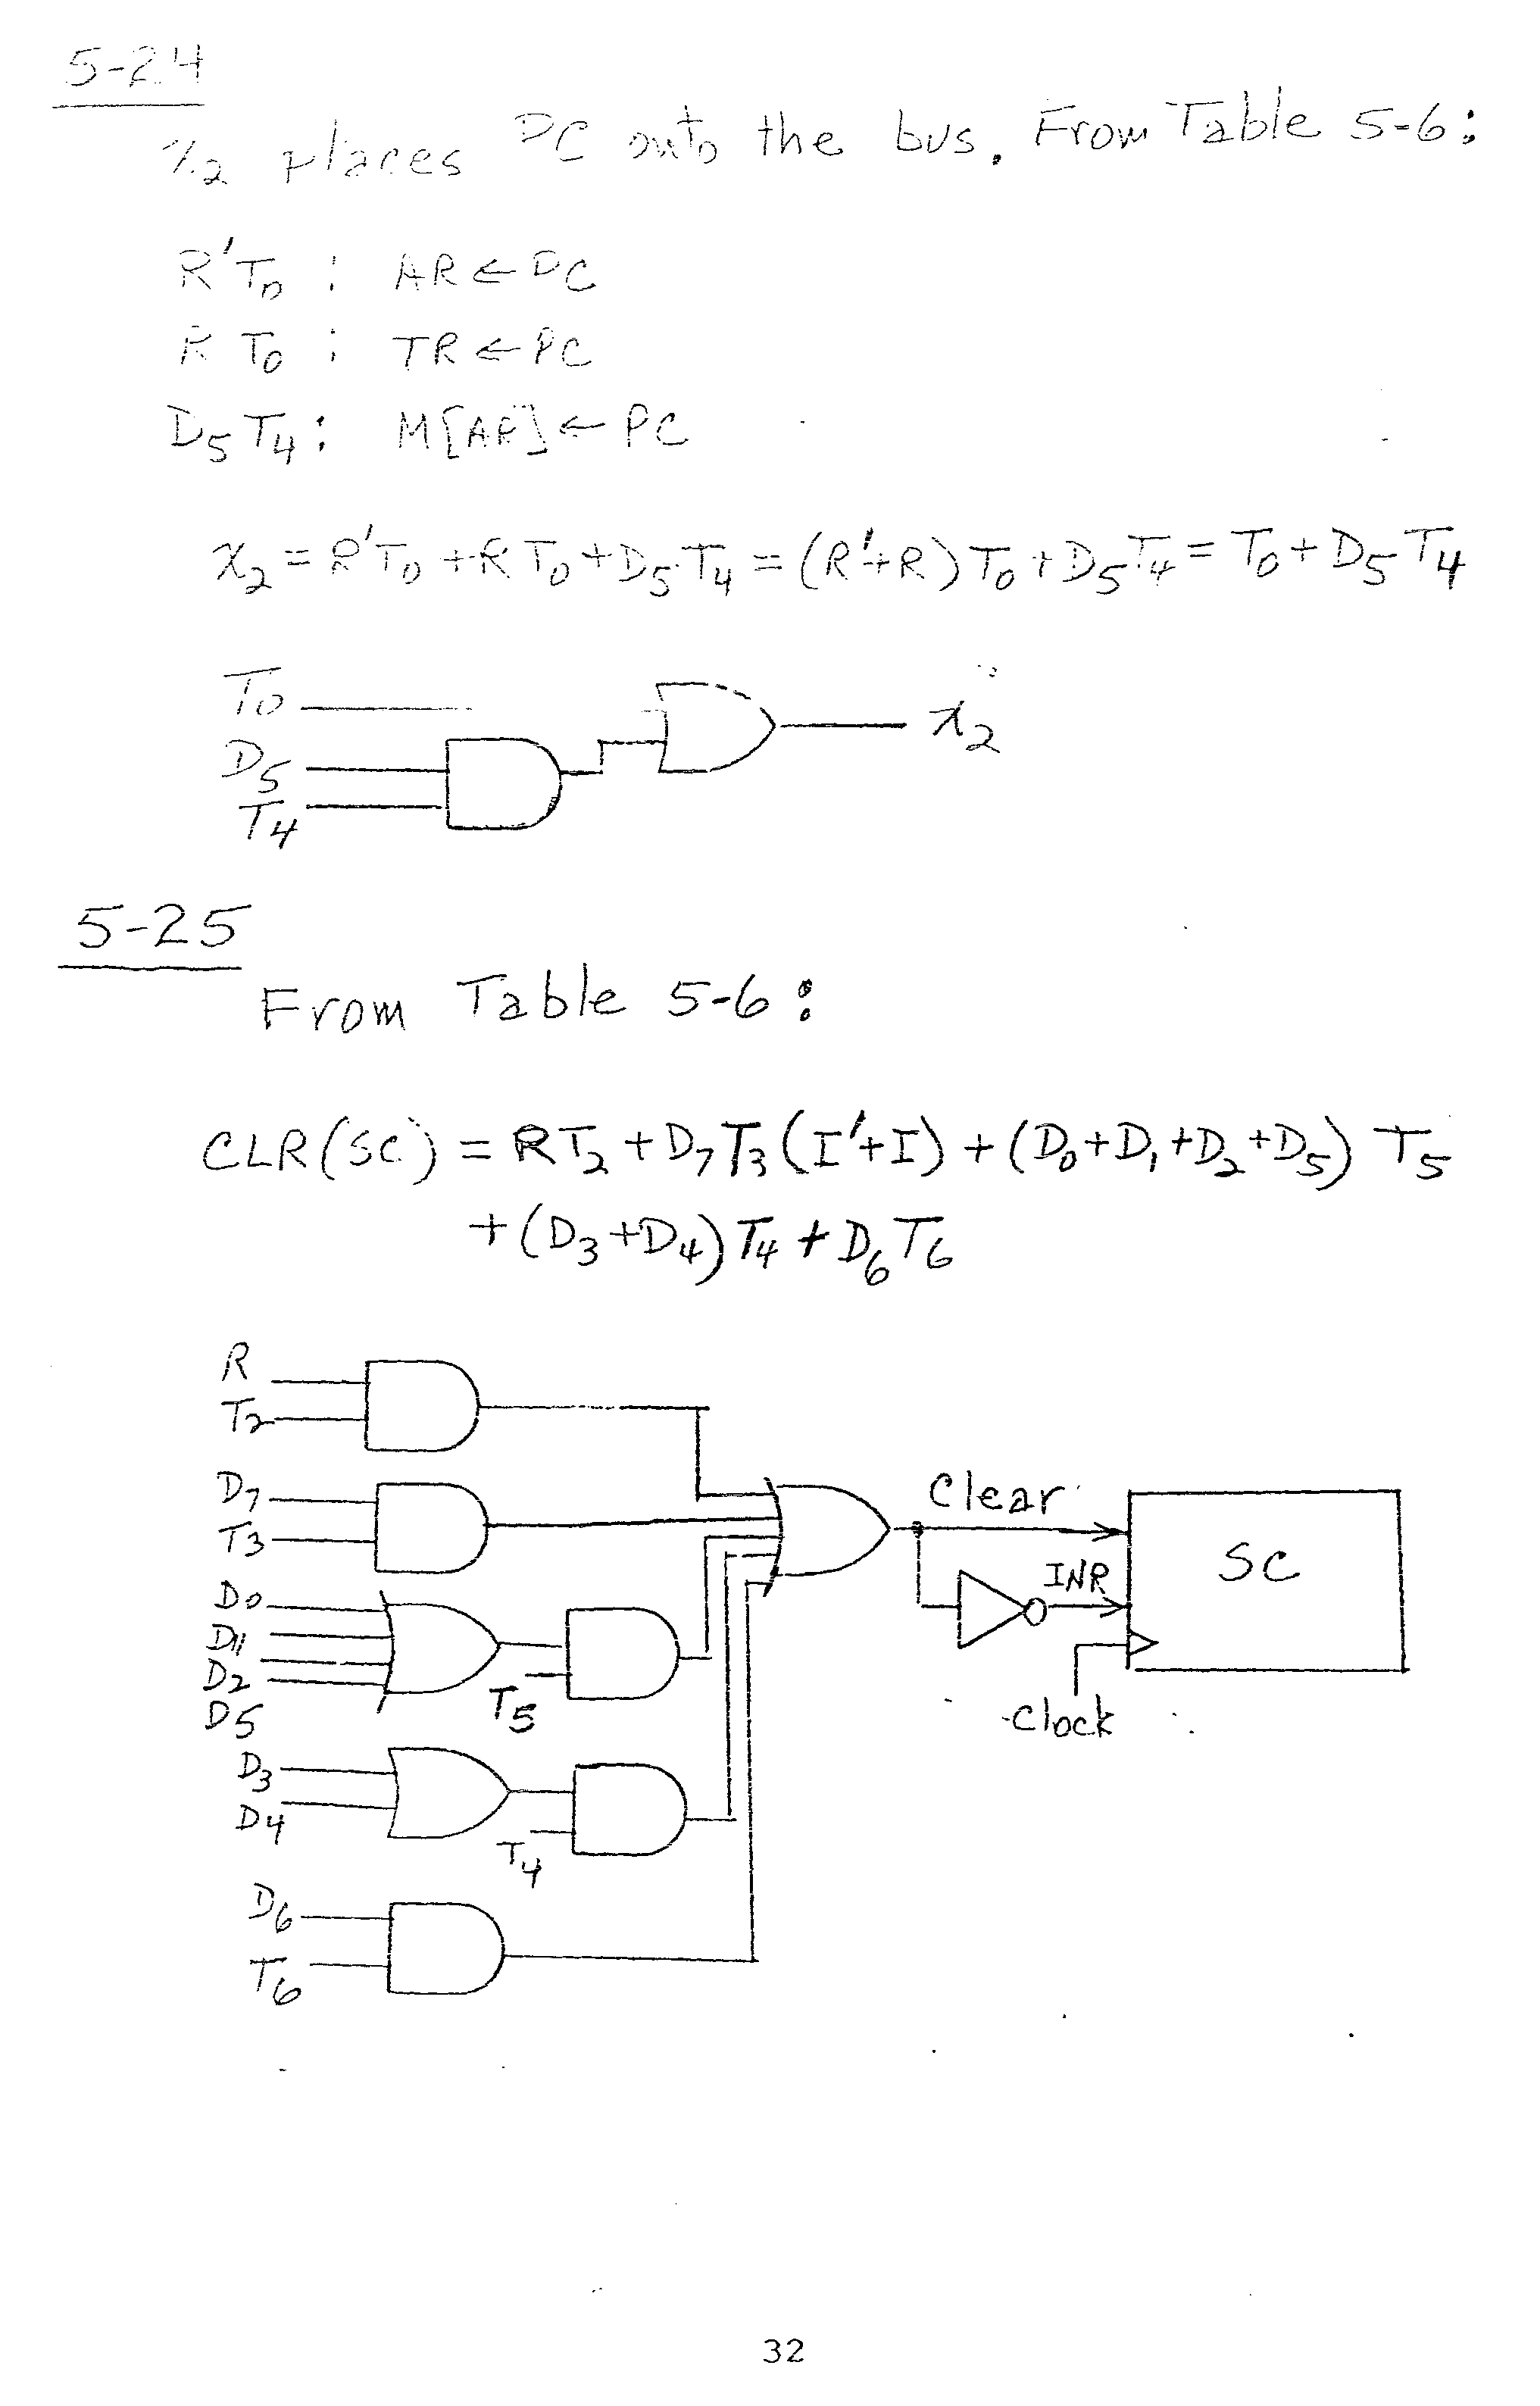 5-24
x₂ places PC onto the bus. From Table 5-6:
R'T₀ : AR ← PC
R T₀ : TR ← PC
D₅T₄ : M[AR] ← PC
x₂ = R'T₀ + R T₀ + D₅T₄ = (R'+R)T₀ + D₅T₄ = T₀ + D₅T₄
T₀
D₅
T₄
x₂
5-25
From Table 5-6:
CLR(SC) = RT₂ + D₇T₃(I'+I) + (D₀+D₁+D₂+D₅) T₅
+ (D₃+D₄)T₄ + D₆T₆
R
T₂
D₇
T₃
D₀
D₁
D₂
D₅
T₅
D₃
D₄
T₄
D₆
T₆
Clear
INR
SC
Clock
32